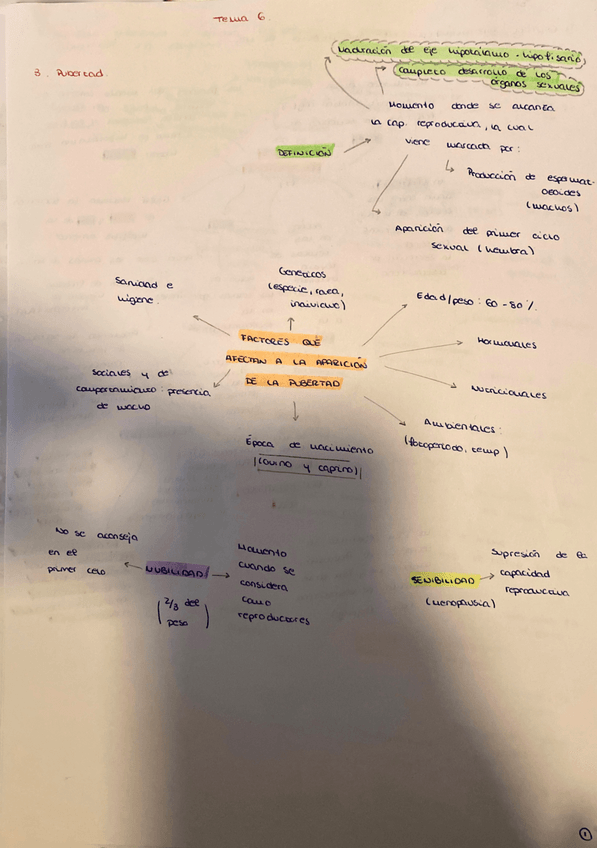 Tema 6.
3. Pubertad.
Maduración del eje hipotálamo-hipofisario,
completo desarrollo de los
órganos sexuales
Momento donde se alcanza
la cap. reproductiva, la cual
viene marcada por:
DEFINICIÓN
Producción de espermat-
ozoides
(machos)
Aparición del primer ciclo
sexual (hembra)
Genéticos
(especie, raza,
individuo)
Sanidad e
higiene.
Edad/peso: 60-80%.
FACTORES QUE
AFECTAN A LA APARICIÓN
DE LA PUBERTAD
Hormonales
Sociales y de
comportamiento: presencia
de macho
Nutricionales
Ambientales:
(fotoperíodo, temp)
Época de nacimiento
(ovino y caprino)
No se aconseja
en el
primer celo
NUBILIDAD
(2/3 del
peso)
Momento
cuando se
considera
como
reproductores
Supresión de la
capacidad
reproductiva
SENIBILIDAD
(menopausia)
1